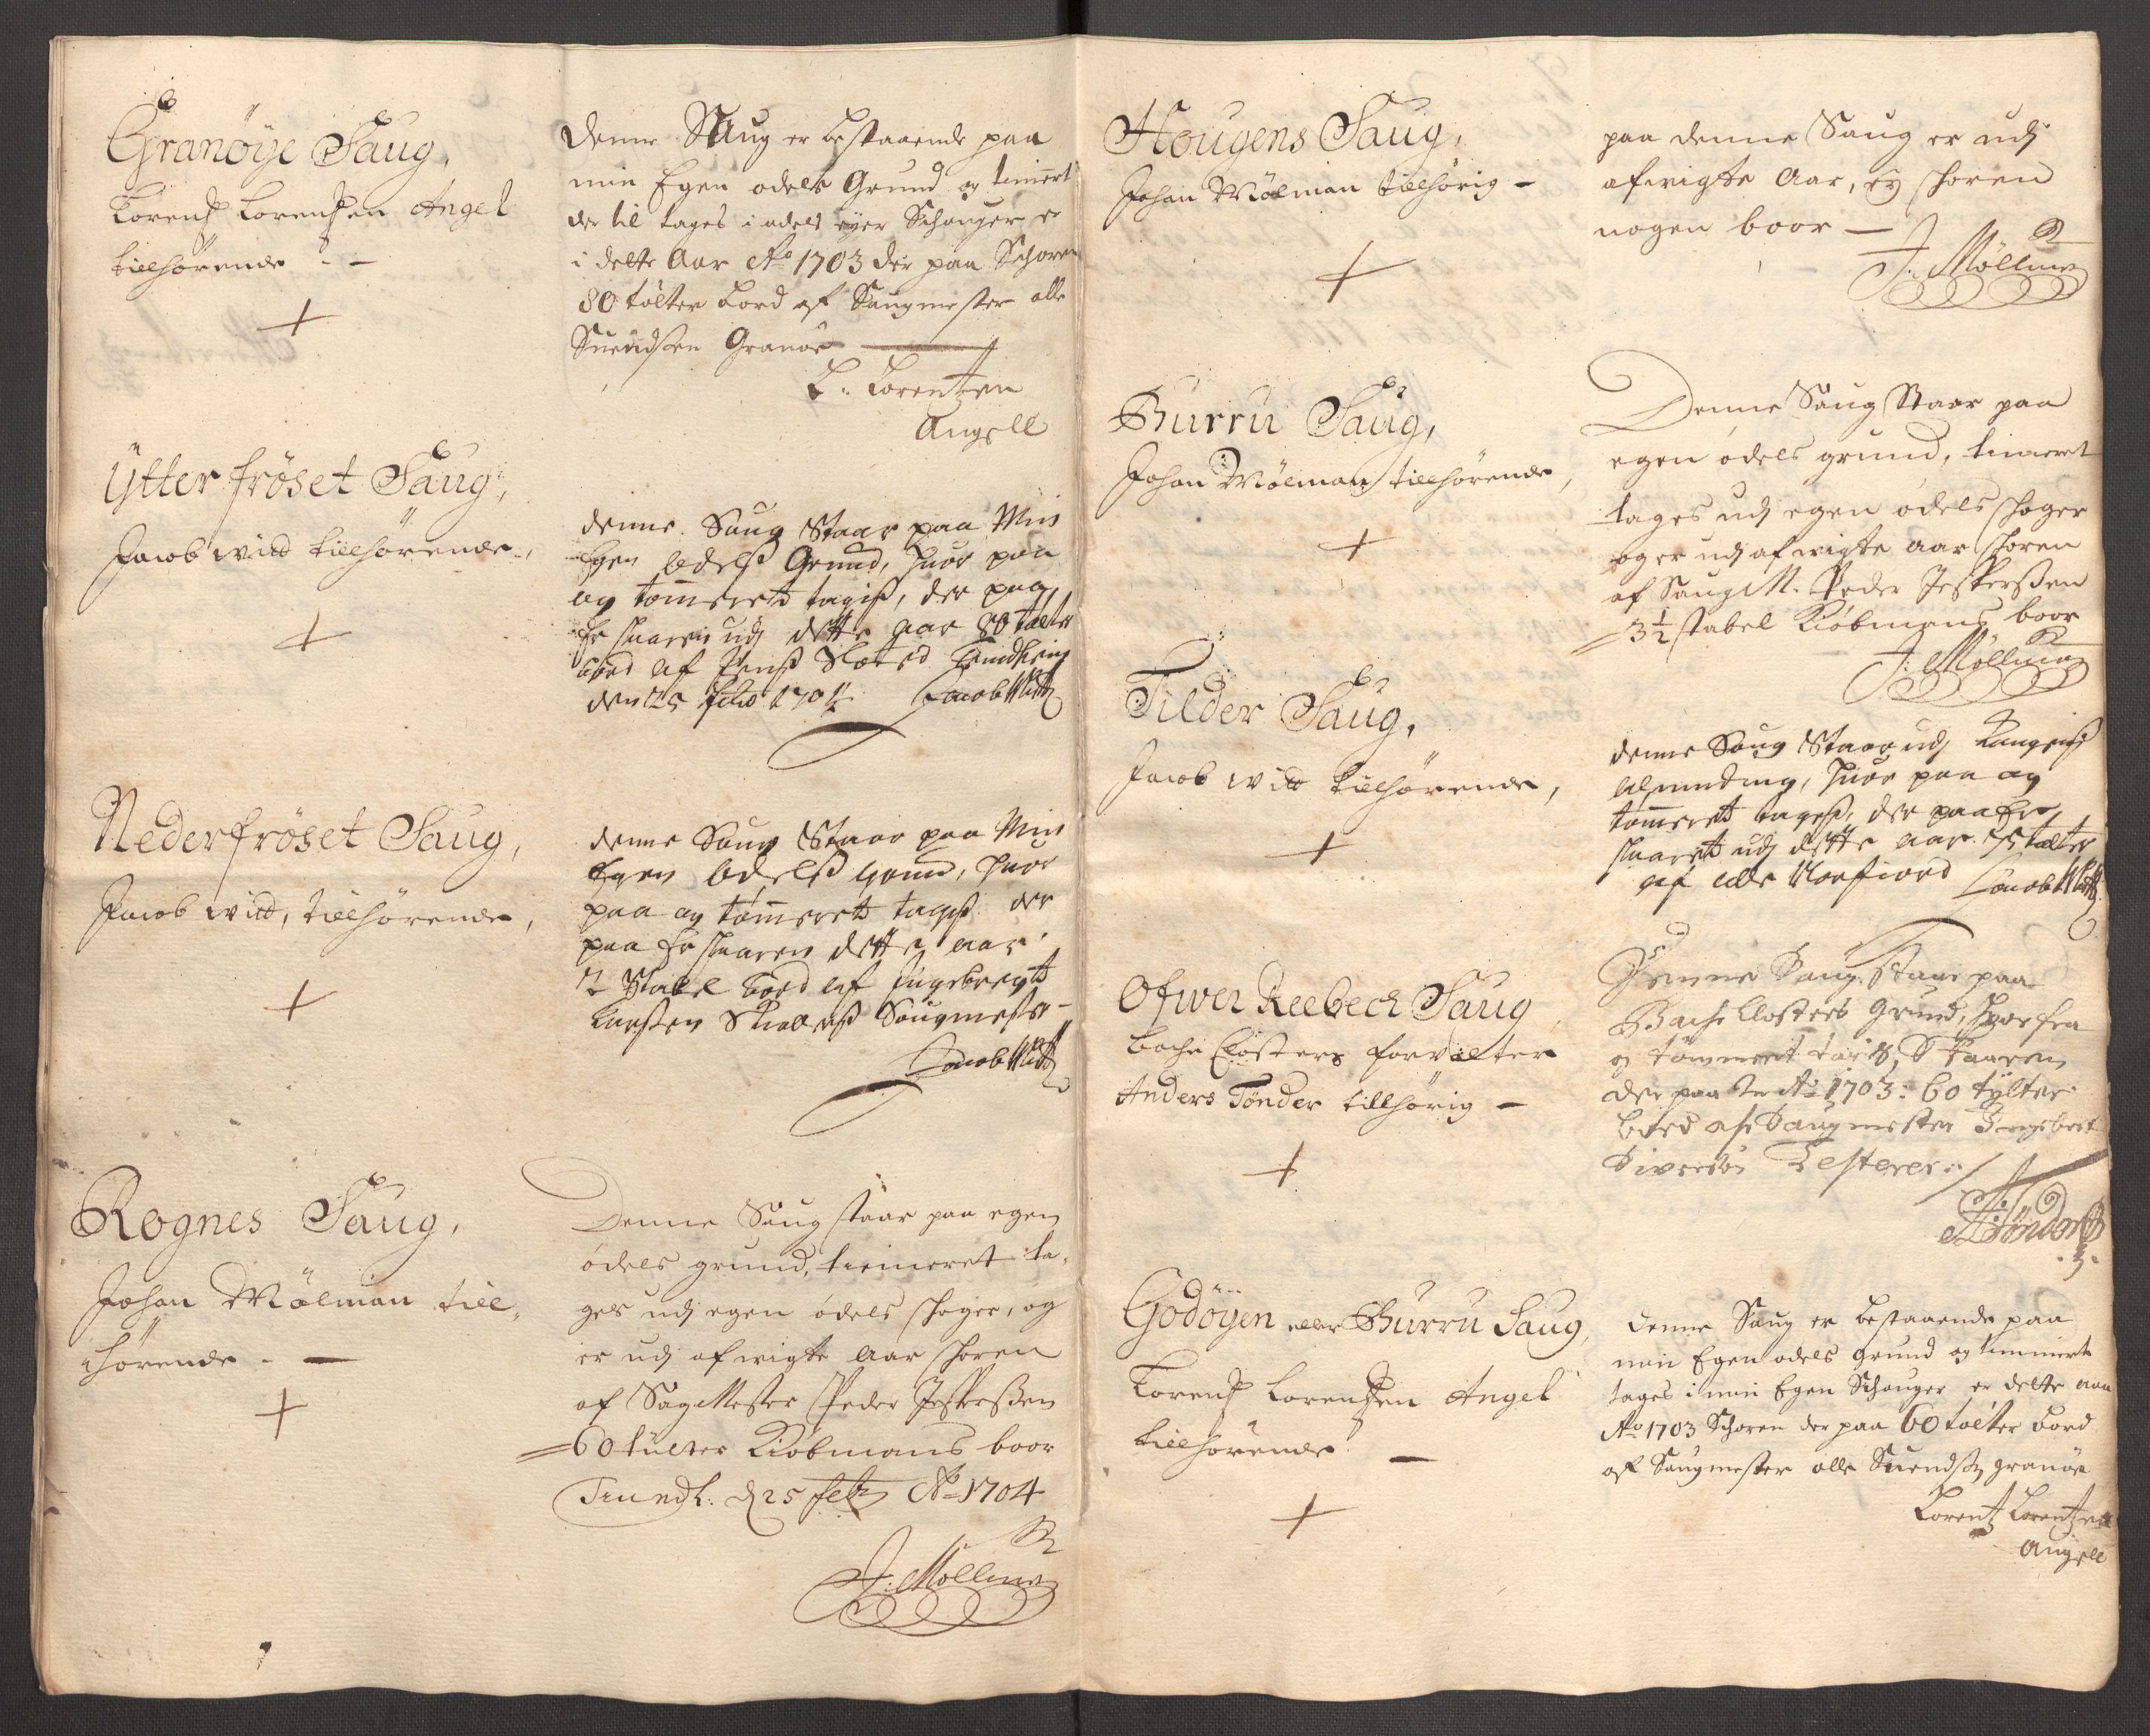 Granöÿe Saug,
Lorentz Lorentzen Angel
tilhörende
Denne Saug er bestaaende paa
min Egen odels Grund og timert
der til tages i odels eyer Schouger er
i dette Aar Ao 1703 der paa Schoren
80 tölter bord af Saugmester olle
Granöe
L: Lorentzen
Angell
Ÿtter fröset Saug,
Jacob witd tilhörende
denne Saug Staar paa Min
Egen odelß Grund, huor paa
og tömmerit tagiß, der paa
Er skaaren udj dette aar 80 tolter
bord af
den 25 febr 1704 Jacob Witt
Neder fröset Saug,
Jacob witd, tilhörende,
denne Saug Staar paa Min
Egen odelß grund, huor
paa og tömmerit tagiß der
paa Er skaaren dette aar
2 Stabel bord af Ingebregt
Larßen Saugmester
Jacob Witt
Rognes Saug,
Johan Mölman till
hörende
Denne Saug staar paa egen
ödels grund, timmeret ta-
ges udj egen ödels skoger, og
er udj afwigte Aar skoren
af SagMester Peder Jesperßen
60 tülter Kiöbmans boor
Trundh: d 25 feb Ao 1704
J: Möllman
Hougens Saug,
Johan Mölman tilhörig
paa denne Saug er udj
afwigte Aar, ey skoren
nogen boor
J: Möllman
Burru Saug,
Johan Mölman tilhörende,
Denne Saug Staar paa
egen ödels grund, timeret
tages udj egen ödels skoger
og er udj afwigte Aar skoren
af Saug M. Peder Jesperßen
3½ stabel Kiöbmans boor
J: Möllman
Tilder Saug,
Jacob witd tilhörende,
denne Saug Staar udj Kongens
Alminding, huor paa og
tömmerit tageß, der paa Er
skaarit udj dette aar 75 tolter
af olle
Jacob Witt
Ofwer Reebech Saug
Bache Closters forvalter
Anders Tönder tillhörig
Denne Saug Staar paa
Bache Closters Grund, hvor fra
og tömmeret tages, Skaaren
der paa in Ao 1703: 60 tylter
bord af Saugmester Ingebret
Sivertsön
A: Tönder
Godöÿen eller Burru Saug,
Lorentz Lorentzen Angel
tilhörende
Denne Saug er bestaaende paa
min Egen odels grund og timmert
tages i min Egen Schouger er dette aar
Ao 1703 Schoren der paa 60 tolter bord
af Saugmester olle Suendsen granöe
Lorentz Lorentzen
Angell